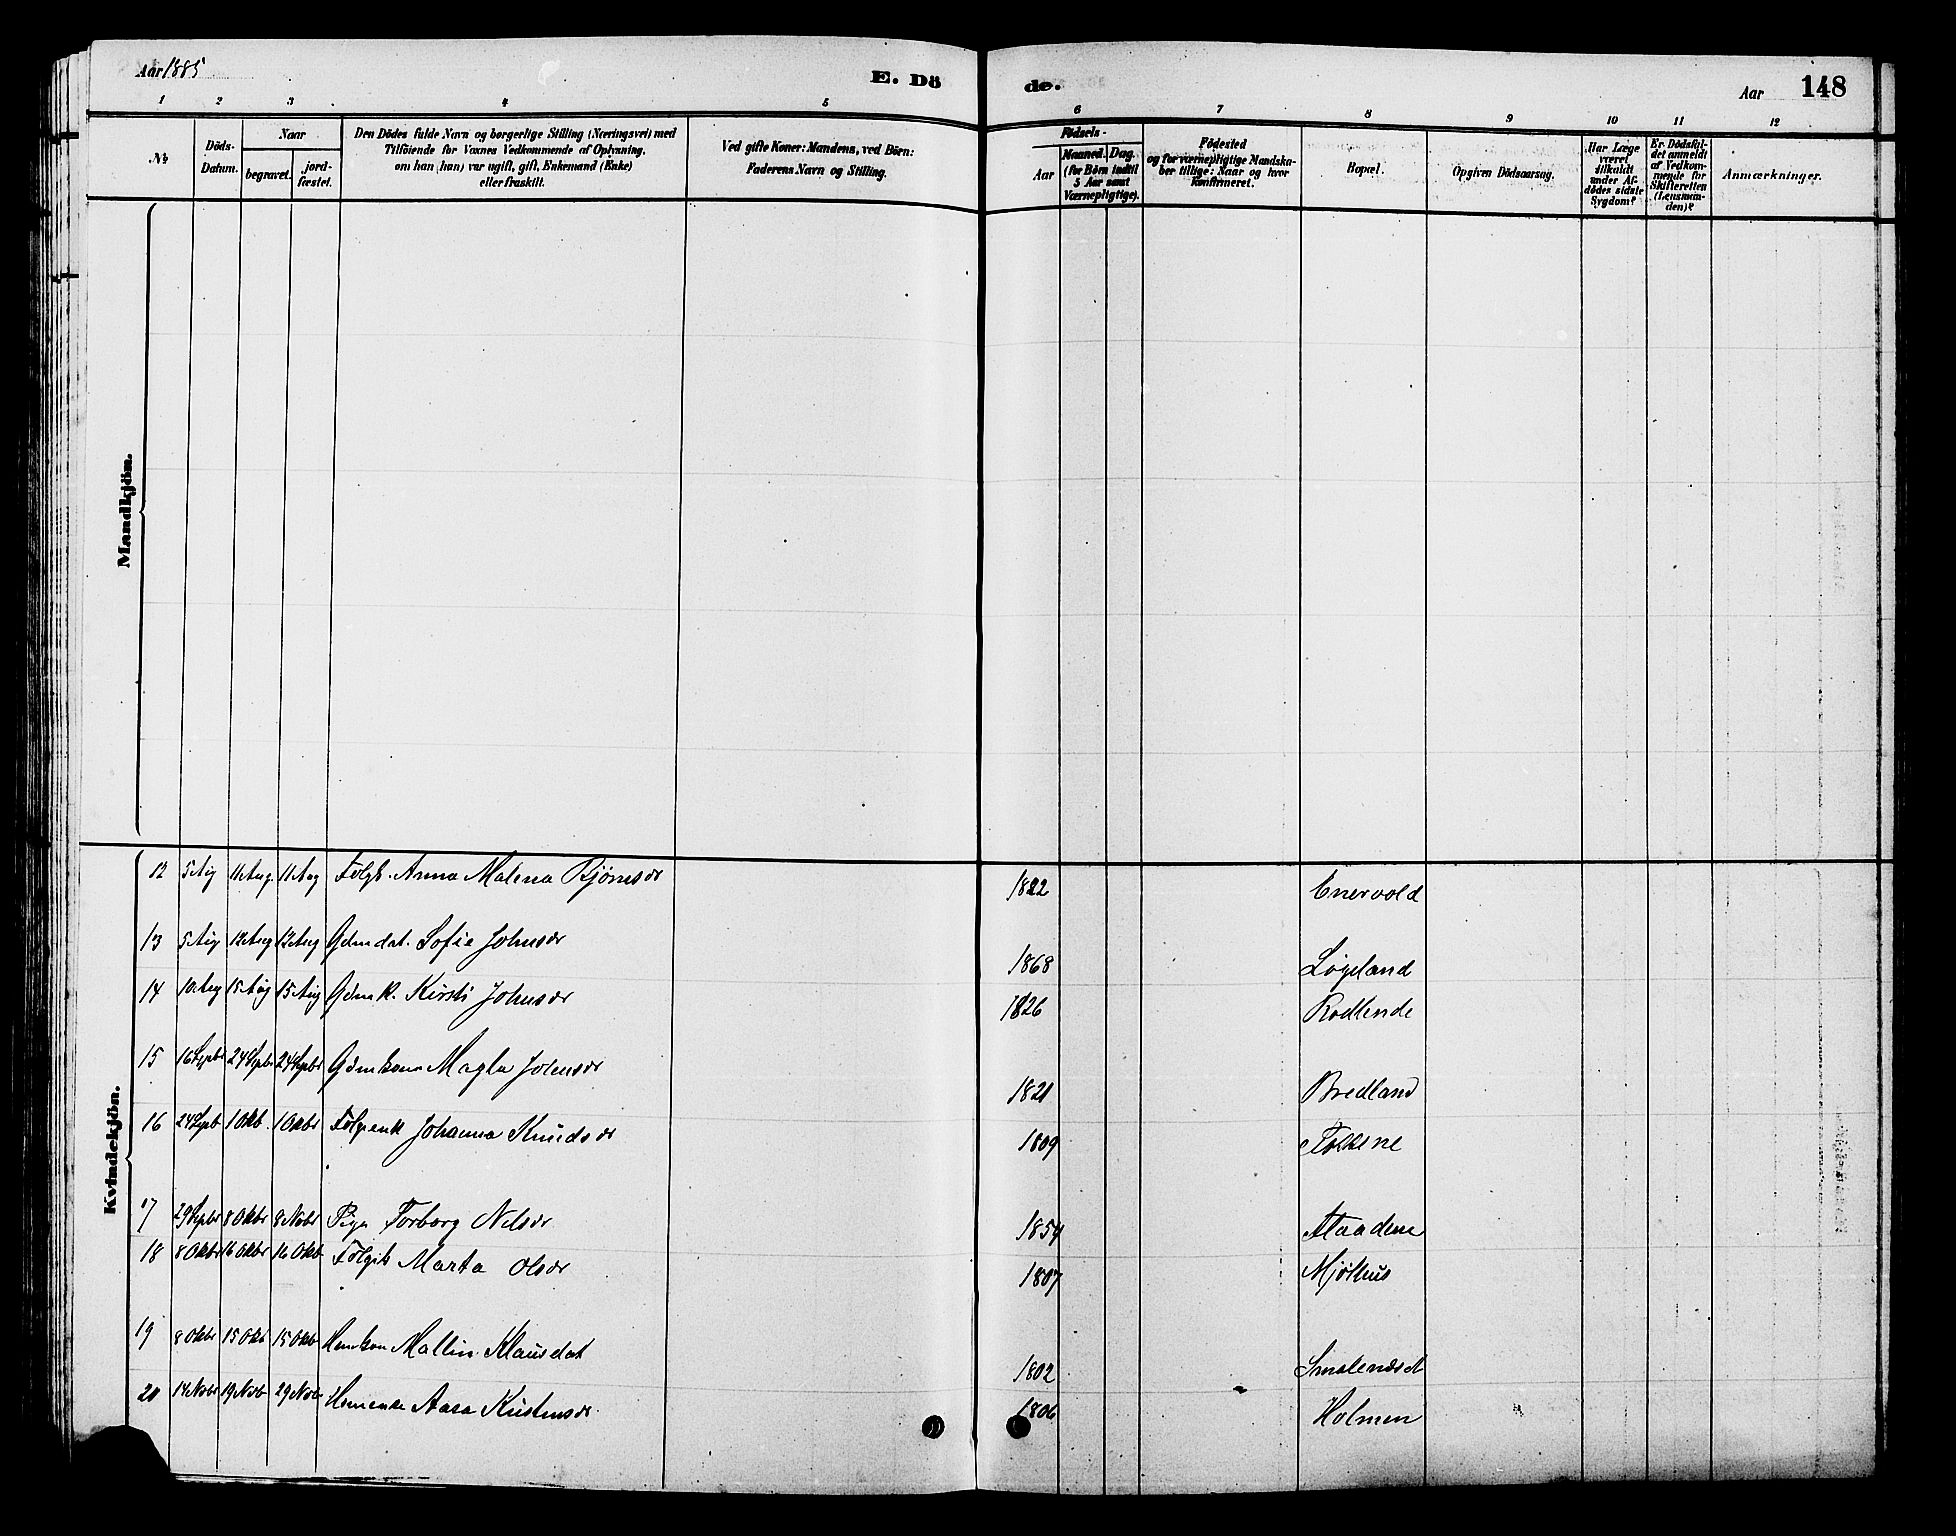 Aar 1885
E. Dö
de.
Aar
148
1 2 3 4 5 6 7 8 9 10 11 12
No
Döds-
Datum.
Naar
begravet.
jord-
fæstet.
Den Dödes fulde Navn og borgerlige Stilling (Næringsvei) med
Tilföiende for Voxnes Vedkommende af Oplysning,
om han (hun) var ugift, gift, Enkemand (Enke)
eller fraskilt.
Ved gifte Koner: Mandens, ved Börn:
Faderens Navn og Stilling.
Födsels-
Aar
Maaned. Dag.
(for Börn indtil
5 Aar samt
Værnepligtige).
Födested
og for værnepligtige Mandska-
ber tillige: Naar og hvor
konfirmeret.
Bopæl.
Opgiven Dödsaarsag.
Har Læge
været
tilkaldt
under Af-
dödes sidste
Sygdom?
Er Dödsfal-
det anmeldt
af Vedkom-
mende for
Skifteretten
(Lensman-
den)?
Anmærkninger.
Mandkjön.
Kvindekjön.
12 5 Aug 11 Aug 11 Aug Folgk. Anna Malena Bjørnsdr 1822 Enervold
13 5 Aug 12 Aug 12 Aug Gdmdat. Sofie Johnsdr 1868 Løgeland
14 10 Aug 15 Aug 15 Aug Gdmk. Kirsti Johnsdr 1826
15 16 Septbr 24 Septbr 24 Septbr Gdmkone Johnsdr 1821 Bredland
16 24 Septb 1 Okb. 1 Okbr Johanna Knudsdr 1809
17 29 Septbr 8 Okbr 8 Nobr Pige Torborg Nilsdr 1854
18 8 Okbr 16 Okbr 16 Okb Marta Olsdr 1807
19 8 Okbr 15 Okb 15 Okb Mallin Klausdat 1802
20 14 Nobr 19 Nob 29 Nob Aasa 1806 Holmen